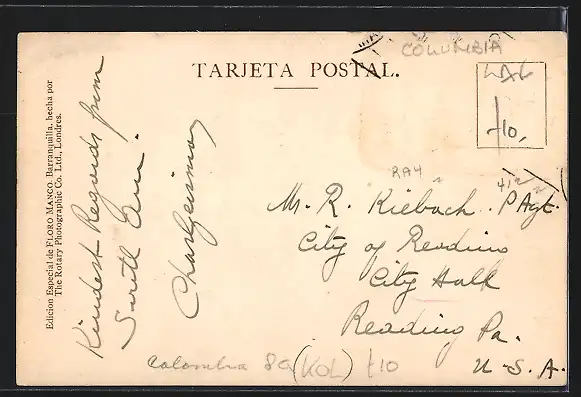 COLUMBIA
TARJETA POSTAL.
£10.
Edicion Especial de FLORO MANCO. Barranquilla, hecha por
The Rotary Photographic Co. Ltd., Londres.
Kindest Regards from
South Am.
RAY
Mr. R. Kiebach. P Agt.
City of Reading
City Hall
Reading Pa.
U. S. A.
Colombia 89 (KOL) £10